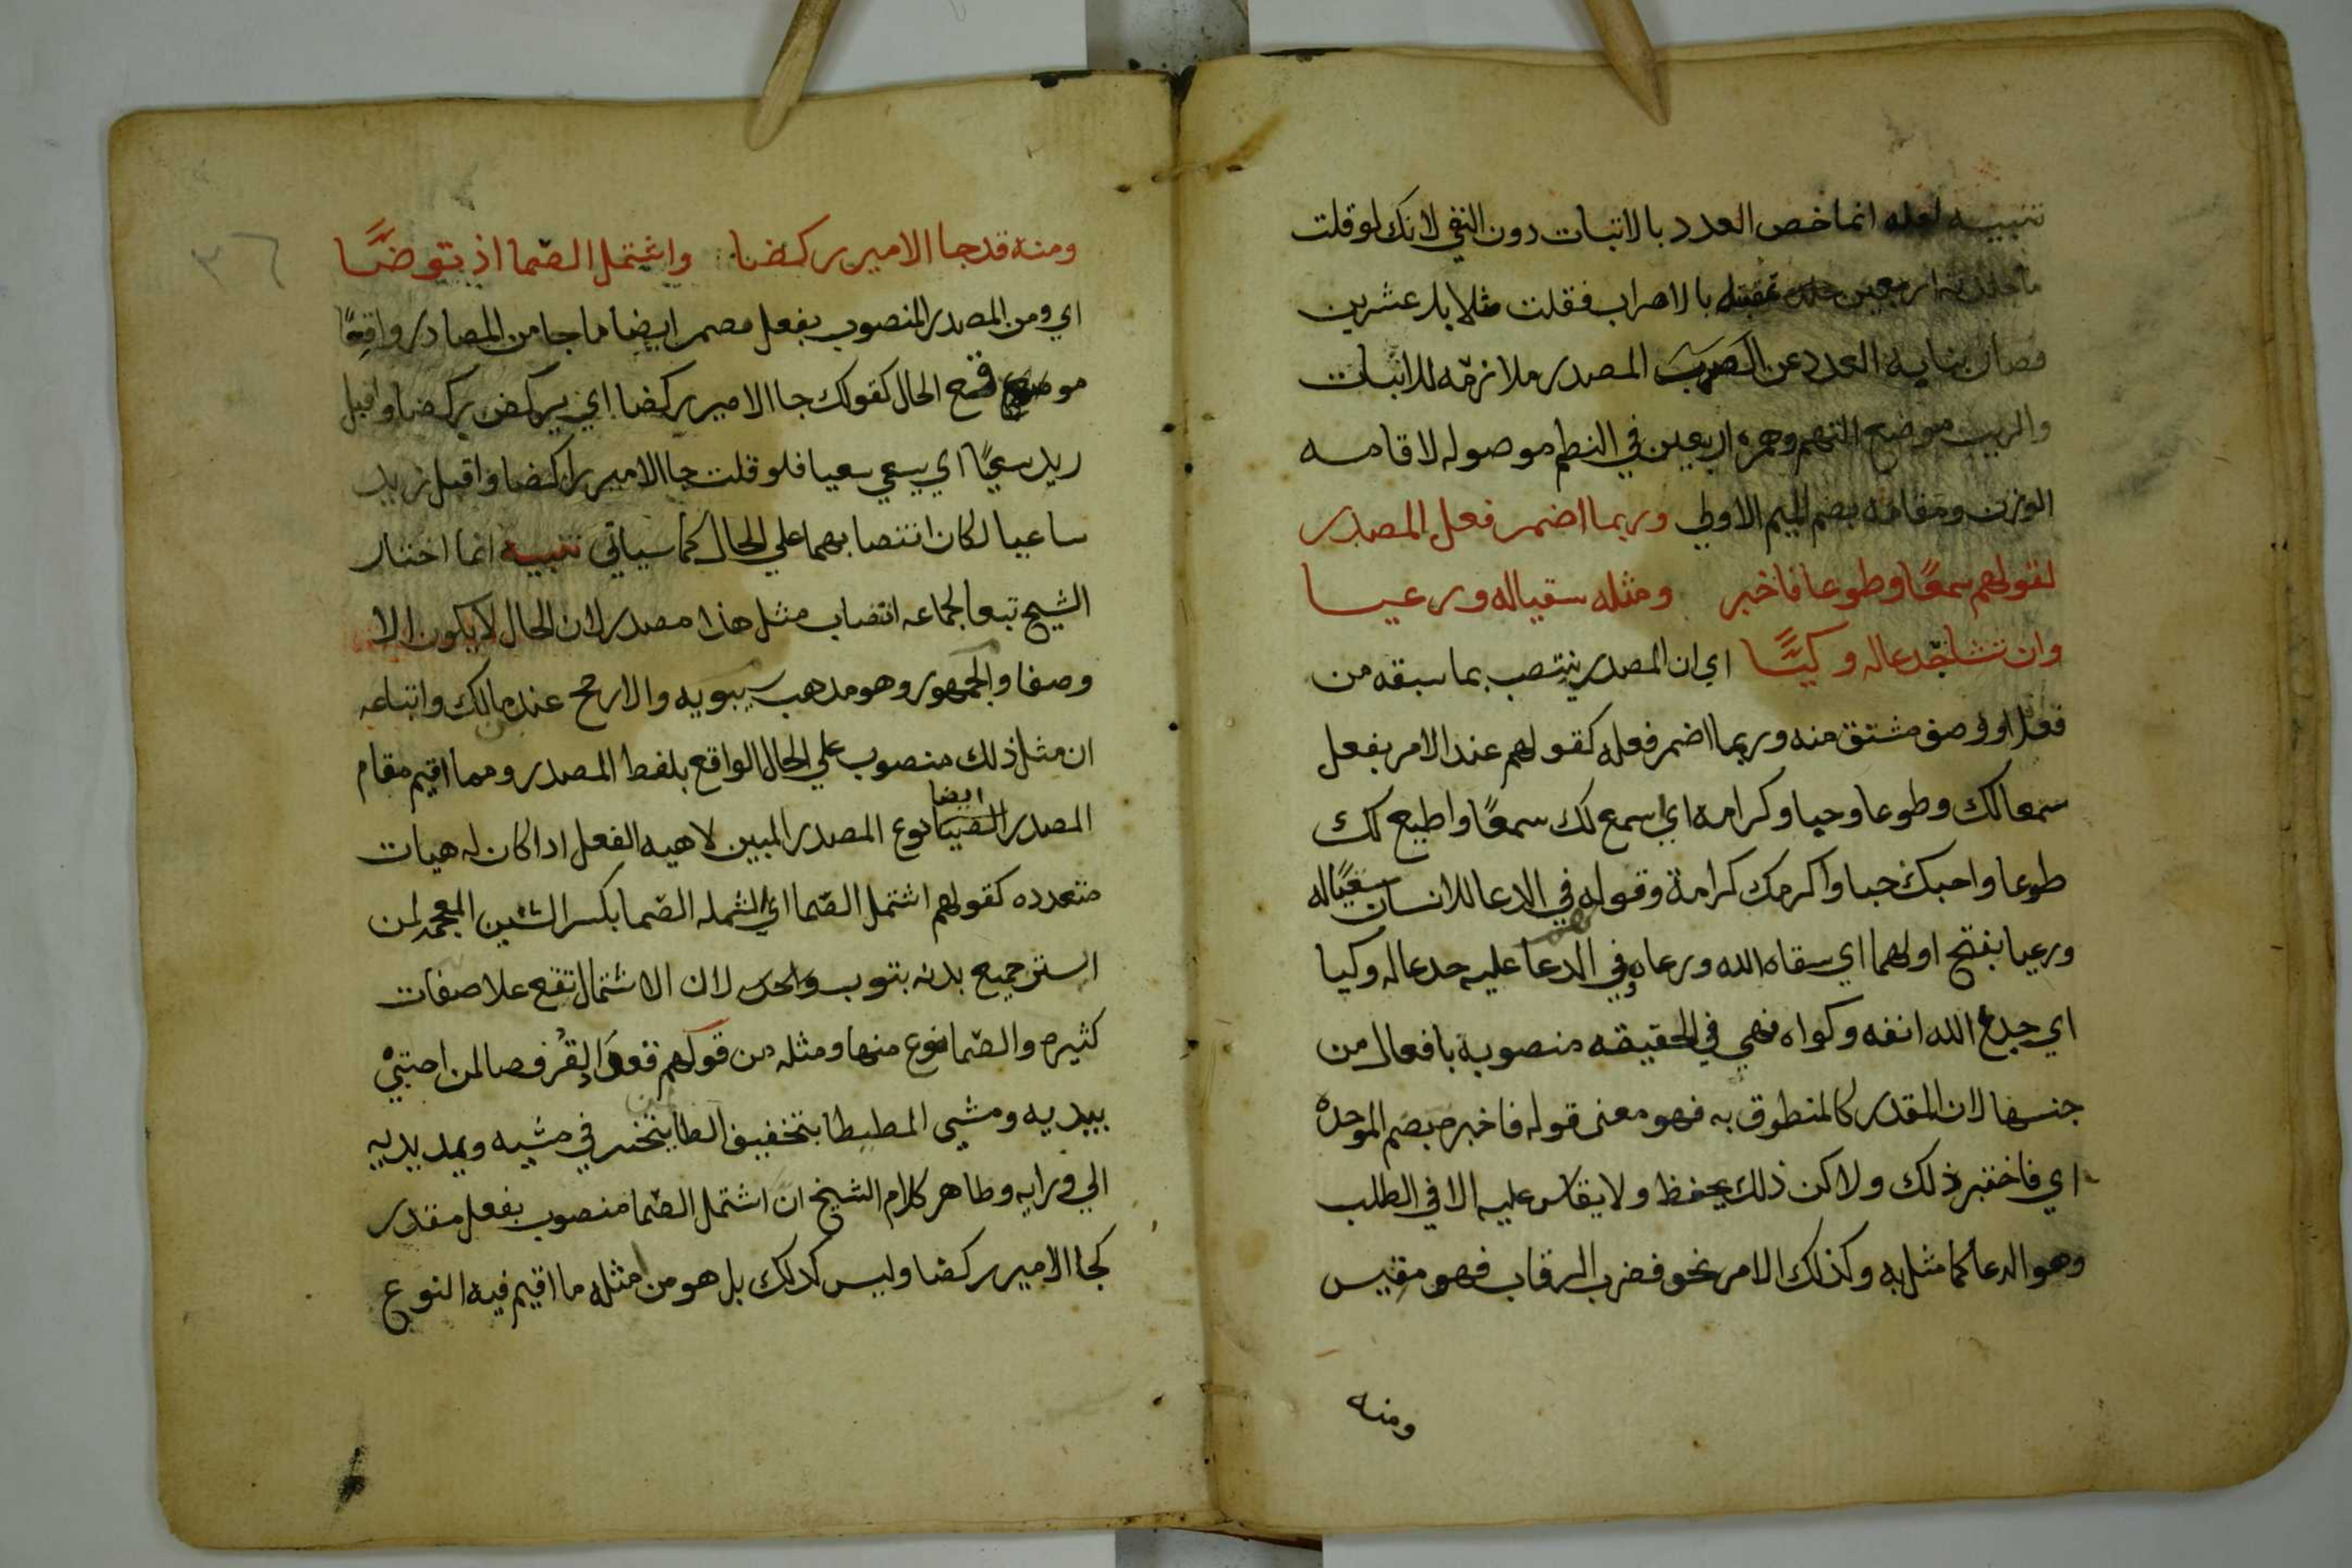 تنبيه لعله انما خص العدد بالاتبات دون النفي لانك لو قلت
ما جلدته اربعين جلده بالاضراب فقلت مثلا بل عشرين
فصار نيابه العدد عن المصدر ملازمه للاتبات
والريب موضع التهم وهمزه اربعين في النظم موصوله لاقامه
الوزن ومقامه بضم الميم الاولي وربما اضمر فعل المصدر
لقولهم سمعًا وطوعا فاخبر ومثله سقيا له ورعيا
وان تشا جدعا له وكيًّا اي ان المصدر ينتصب بما سبقه من
فعل او وصف مشتق منه وربما اضمر فعله كقولهم عند الامر بفعل
سمعا لك وطوعا وحبا وكرامة اي اسمع لك سمعًا واطيع لك
طوعا واحبك حبا واكرمك كرامة وقوله في الادعا للانسان سقيًا له
ورعيا بفتح اولهما اي سقاه الله ورعاه وفي الدعا عليه جدعا له وكيا
اي جدع الله انفه وكواه فهي في الحقيقه منصوبة بافعال من
جنسها لان المقدر كالمنطوق به فهو معنى قوله فاخبر بضم الموحدة
اي فاختبر ذلك ولاكن ذلك يحفظ ولا يقاس عليه الا في الطلب
وهو الدعا كما مثل به وكذلك الامر نحو فضرب الرقاب فهو مقيس
ومنه
٣٦
ومنه قد جا الامير ركضا واشتمل الصّما اذ توضّا
اي ومن المصدر المنصوب بفعل مضمر ايضا ما جا من المصادر واقعًا
موقع الحال كقولك جا الامير ركضا اي يركض ركضا واقبل
زيد سعيًا اي يسعي سعيا فلو قلت جا الامير راكضا واقبل زيد
ساعيا لكان انتصابهما علي الحال كما سياتي تنبيه انما اختار
الشيخ تبعا لجماعه انتصاب مثل هذا مصدرا لان الحال لا يكون الا
وصفا والجمهور وهو مدهب سيبويه والارجح عند مالك واتباعه
ان مثل ذلك منصوب علي الحال الواقع بلفظ المصدر ومما اقيم مقام
المصدر ايضا نوع المصدر المبين لاهيه الفعل ادا كان له هيات
متعدده كقولهم اشتمل الصّما اي الشمله الصّما بكسر الشين المعجمه لمن
استر جميع بدنه بتوب واحد لان الاشتمال تقع علا صفات
كثيره والصّما نوع منها ومثله من قولهم قعد القرفصا لمن احتبي
بيديه ومشي المطيطا بتخفيف الطا يتختر في مشيه ويمد يديه
الي ورايه وظاهر كلام الشيخ ان اشتمل الصّما منصوب بفعل مقدر
كجا الامير ركضا وليس كدلك بل هو من مثله ما اقيم فيه النوع